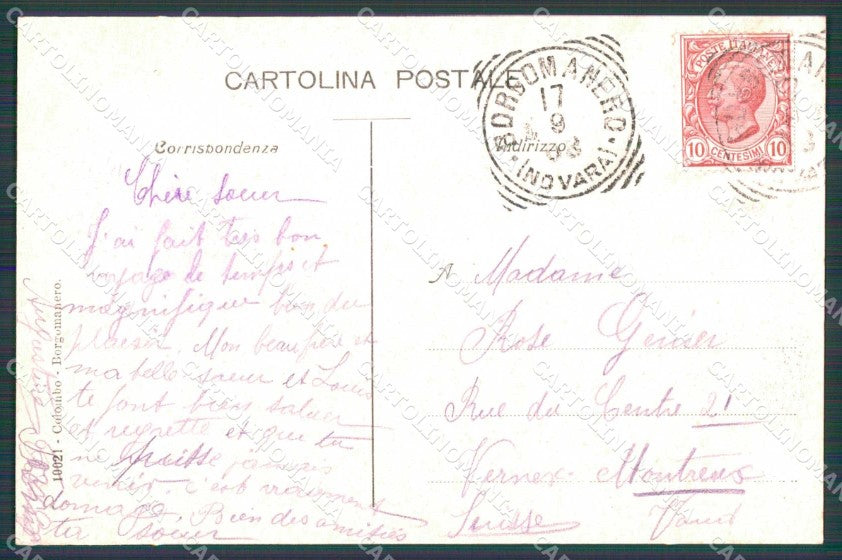 CARTOLINA POSTALE
POSTE ITALIANE
10 CENTESIMI 10
BORGOMANERO
17
9
(NOVARA)
Corrispondenza
Indirizzo
Chère soeur
J'ai fait très bon
voyage le temps et
magnifique bon du
plaisir. Mon beau père et
ma belle soeur et Louis
te font bien saluer
et regrette et que tu
ne puisse jamais
venir, c'est vraiment
domage, Bien des amitiés
ta soeur
A Madame
Rose
Rue du Centre 21
Vernex-Montreux
Suisse Vaud
10021 - Colombo - Borgomanero.
CARTOLINOMANIA